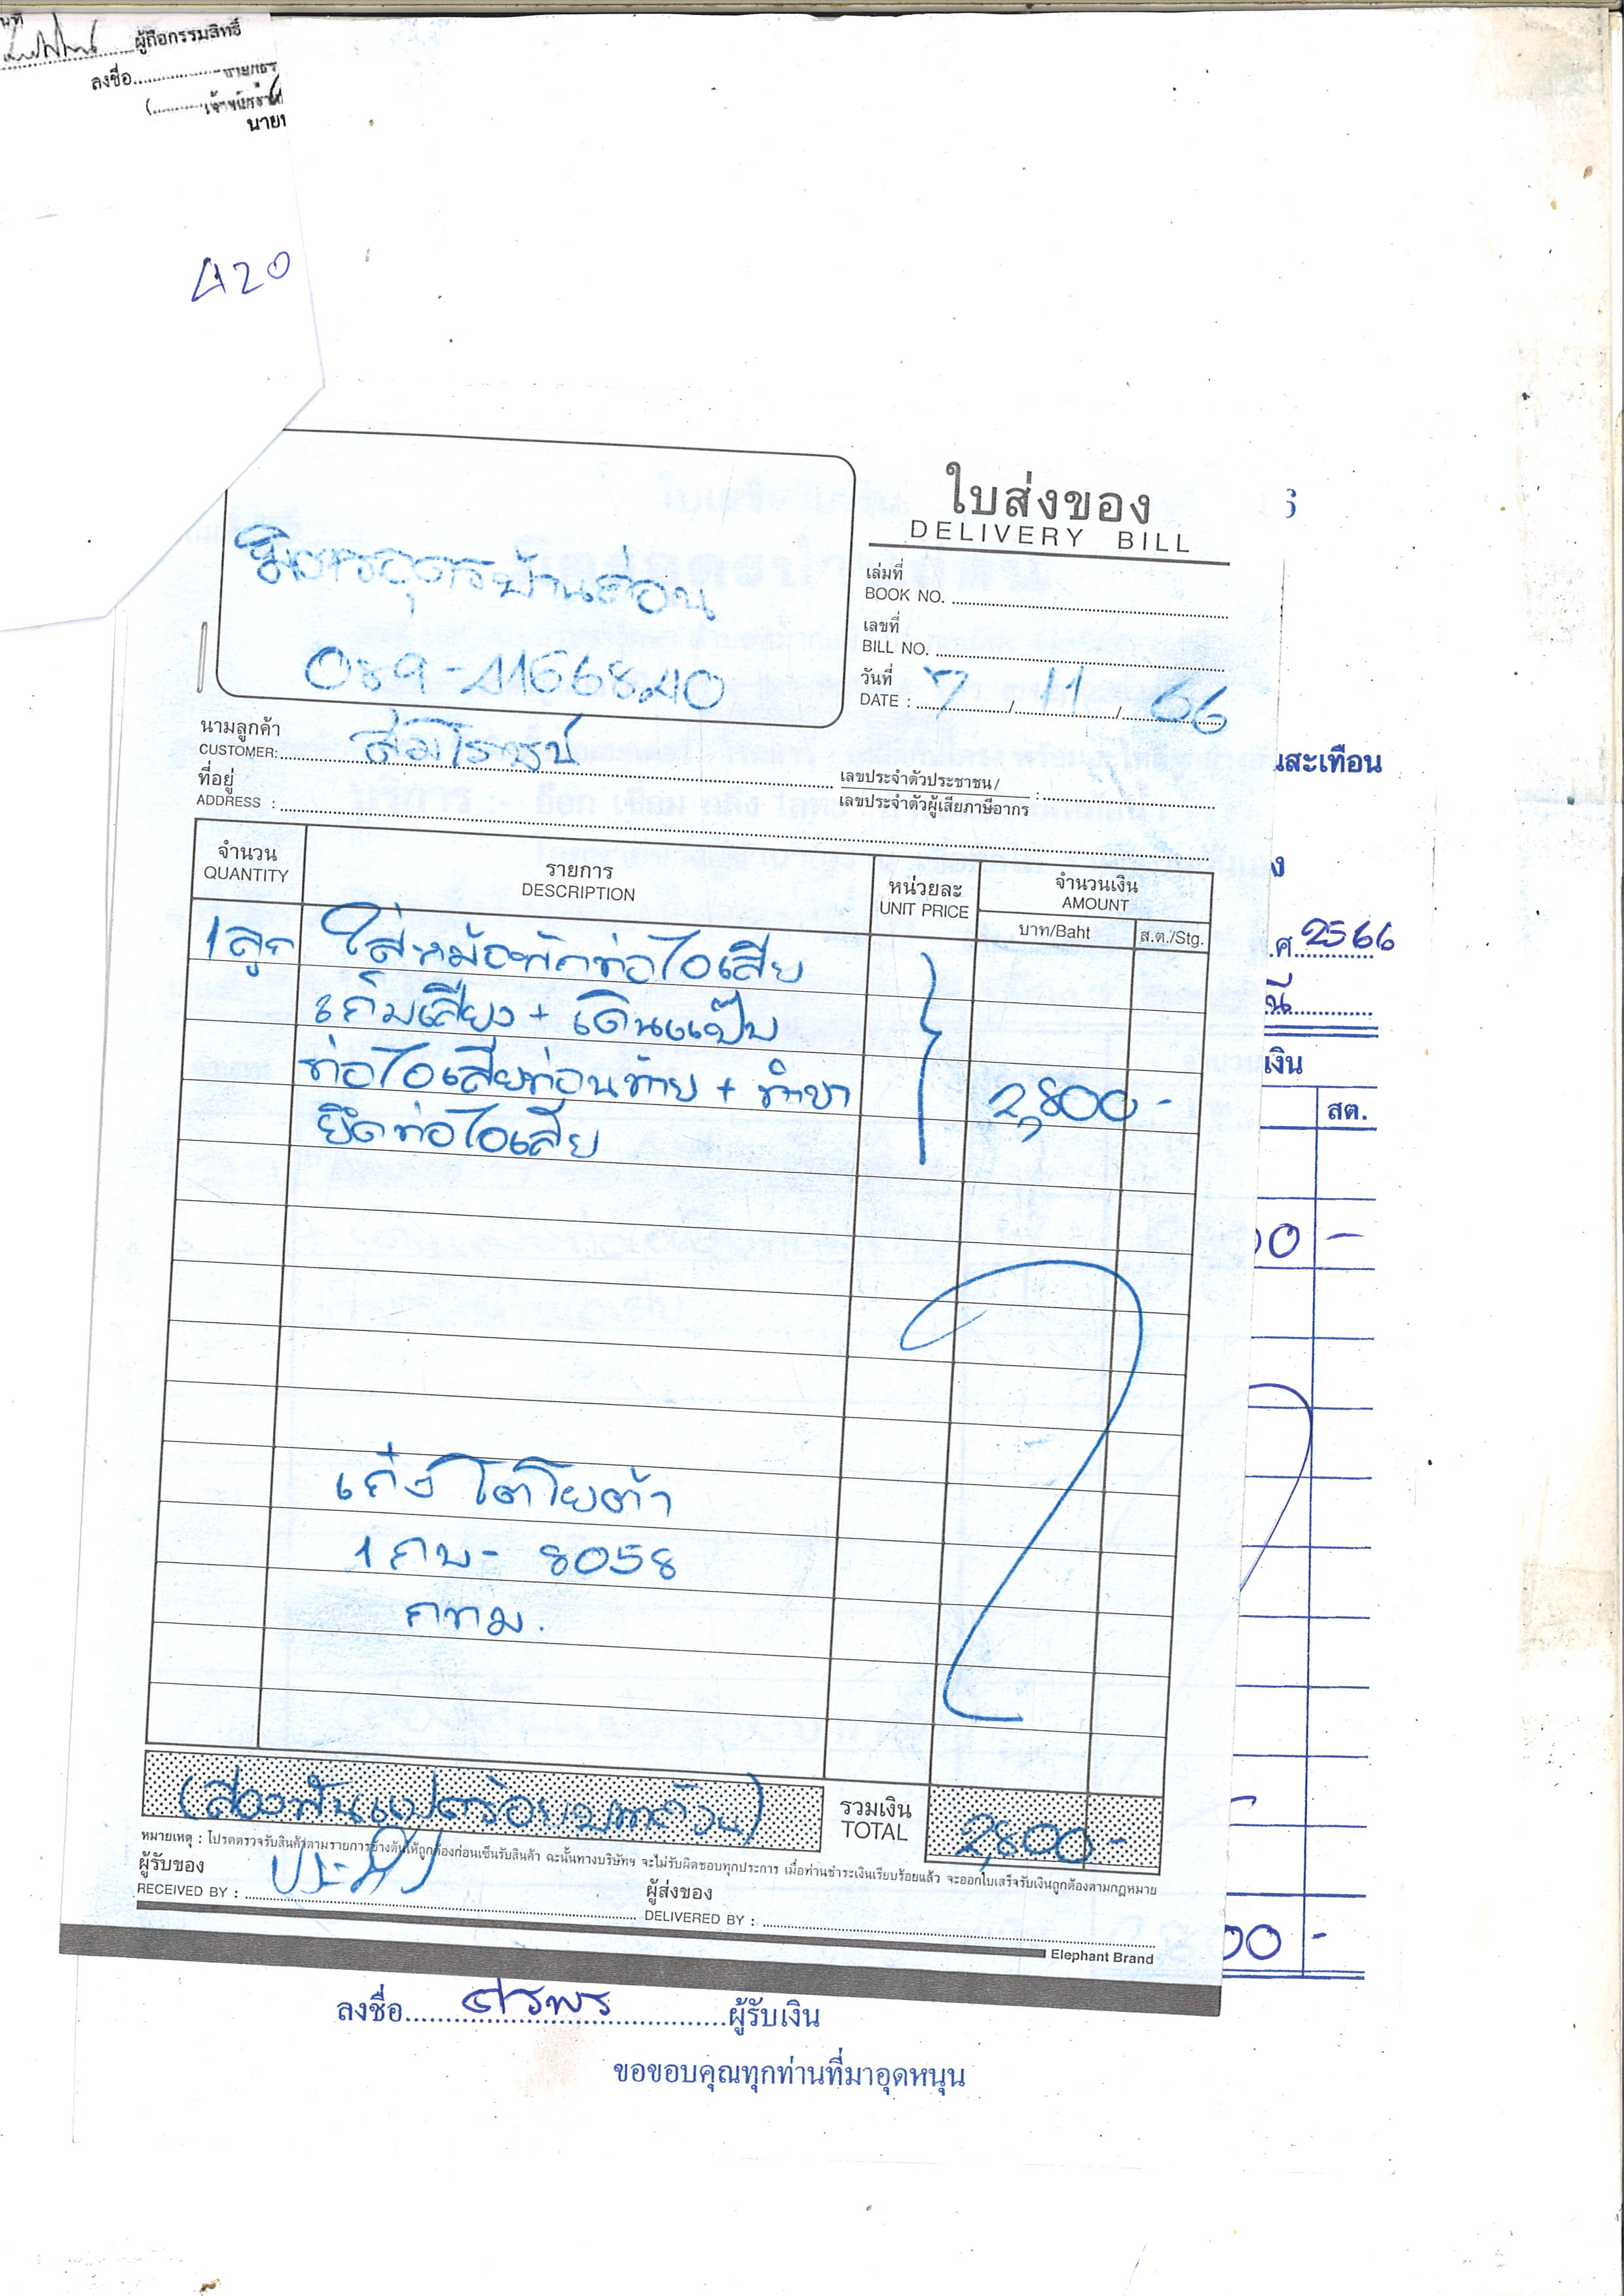 ผู้ถือกรรมสิทธิ์
ลงชื่อ
420
ใบส่งของ
DELIVERY BILL
มิตรอุดรบ้านค่อน
089-4166840
เล่มที่
BOOK NO.
เลขที่
BILL NO.
วันที่
DATE : 7 / 11 / 66
นามลูกค้า
CUSTOMER: ส้มโรจน์
ที่อยู่
ADDRESS :
เลขประจำตัวประชาชน/
เลขประจำตัวผู้เสียภาษีอากร :
นสะเทือน
ง
.ศ. 2566
จำนวน รายการ หน่วยละ จำนวนเงิน
QUANTITY DESCRIPTION UNIT PRICE AMOUNT
บาท/Baht ส.ต./Stg.
เงิน
สต.
1 ลูก ใส่หม้อพักท่อไอเสีย
เก็บเสียง + เดินแป๊บ
ท่อไอเสียท่อนท้าย + ทำขา 2,800-
ยึดท่อไอเสีย
00 -
เก๋ง โตโยต้า
1 กบ - 8058
กทม.
(สองพันแปดร้อยบาทถ้วน) รวมเงิน
TOTAL 2,800-
หมายเหตุ : โปรดตรวจรับสินค้าตามรายการข้างต้นให้ถูกต้องก่อนเซ็นรับสินค้า ฉะนั้นทางบริษัทฯ จะไม่รับผิดชอบทุกประการ เมื่อท่านชำระเงินเรียบร้อยแล้ว จะออกใบเสร็จรับเงินถูกต้องตามกฎหมาย
ผู้รับของ
RECEIVED BY :
ผู้ส่งของ
DELIVERED BY :
Elephant Brand
00 -
ลงชื่อ ศรพร ผู้รับเงิน
ขอขอบคุณทุกท่านที่มาอุดหนุน